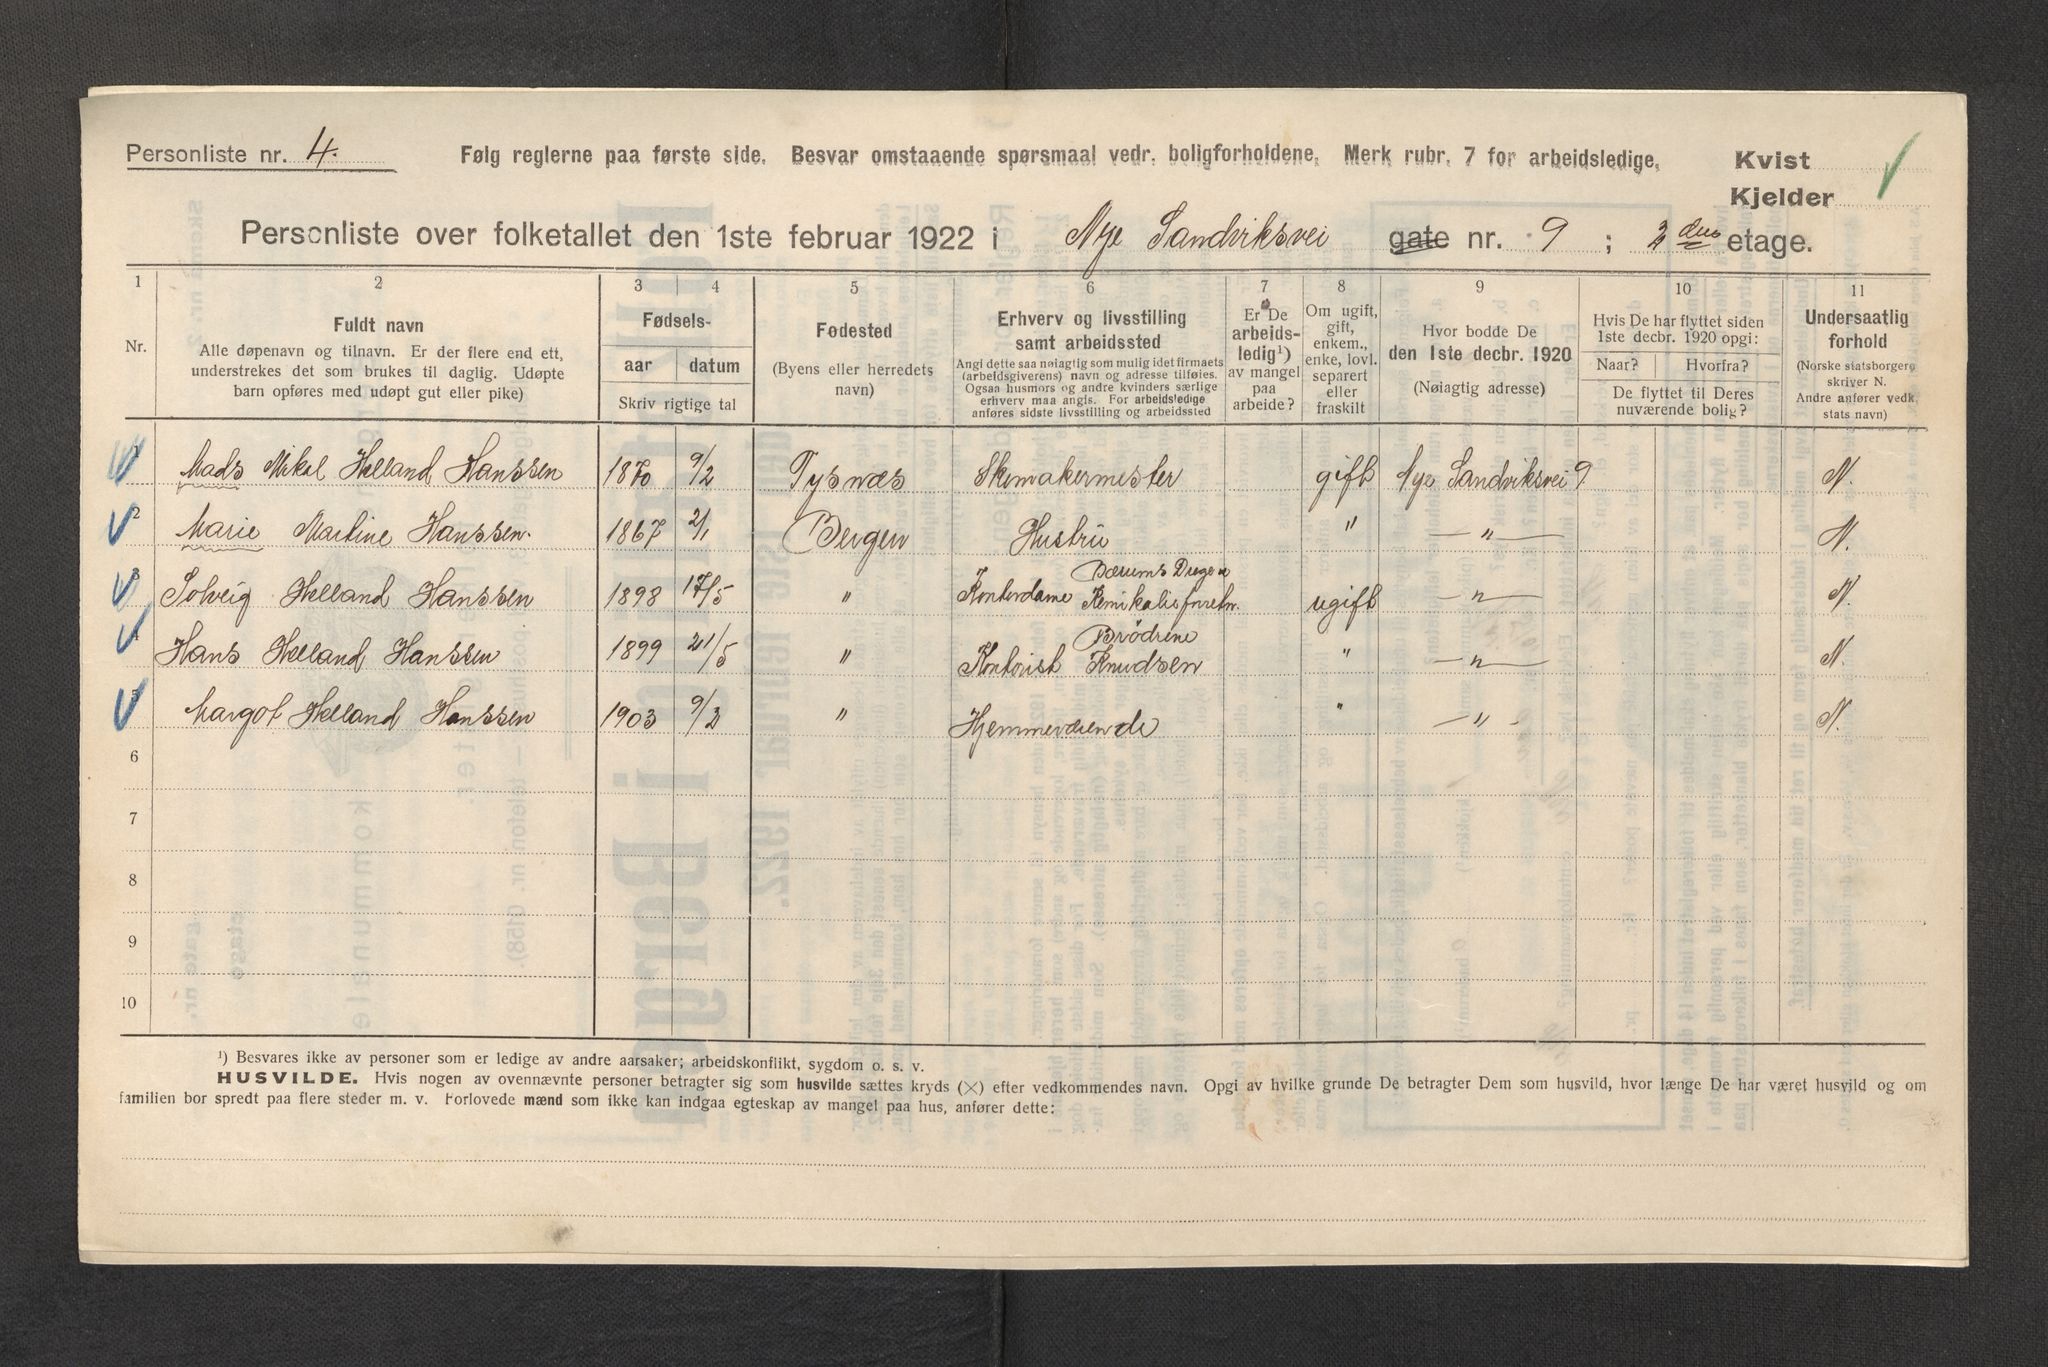 Personliste nr. 4.
Følg reglerne paa første side. Besvar omstaaende spørsmaal vedr. boligforholdene. Merk rubr. 7 for arbeidsledige.
Kvist
Kjelder
Personliste over folketallet den 1ste februar 1922 i Nye Sandviksvei gate nr. 9 ; 2 den etage.
1 2 3 4 5 6 7 8 9 10 11
Nr.
Fuldt navn
Alle døpenavn og tilnavn. Er der flere end ett,
understrekes det som brukes til daglig. Udøpte
barn opføres med udøpt gut eller pike)
Fødsels-
aar datum
Skriv rigtige tal
Fødested
(Byens eller herredets
navn)
Erhverv og livsstilling
samt arbeidssted
Angi dette saa nøiagtig som mulig idet firmaets
(arbeidsgiverens) navn og adresse tilføies.
Ogsaa husmors og andre kvinders særlige
erhverv maa angis. For arbeidsledige
anføres sidste livsstilling og arbeidssted
Er De
arbeids-
ledig¹)
av mangel
paa
arbeide?
Om ugift,
gift,
enkem.,
enke, lovl.
separert
eller
fraskilt
Hvor bodde De
den 1ste decbr. 1920
(Nøiagtig adresse)
Hvis De har flyttet siden
1ste decbr. 1920 opgi:
Naar? Hvorfra?
De flyttet til Deres
nuværende bolig?
Undersaatlig
forhold
(Norske statsborgere
skriver N.
Andre anfører vedk.
stats navn)
1 Mads Mikal Helland Hanssen 1870 9/2 Tysnæs Skomakermester gift Nye Sandviksvei 9 N.
2 Marie Martine Hanssen. 1867 2/1 Bergen Hustru " — " — N.
3 Solveig Helland Hanssen 1898 17/5 " Kontordame Bærums Droge & Kemikalieforretn. ugift — " — N.
4 Hans Helland Hanssen 1899 21/5 " Kontorist Brødrene Knudsen " — " — N.
5 Margot Helland Hanssen 1903 9/2 " Hjemmeværende " — " - N.
6
7
8
9
10
¹) Besvares ikke av personer som er ledige av andre aarsaker; arbeidskonflikt, sygdom o. s. v.
HUSVILDE. Hvis nogen av ovennævnte personer betragter sig som husvilde sættes kryds (×) efter vedkommendes navn. Opgi av hvilke grunde De betragter Dem som husvild, hvor længe De har været husvild og om
familien bor spredt paa flere steder m. v. Forlovede mænd som ikke kan indgaa egteskap av mangel paa hus, anfører dette: